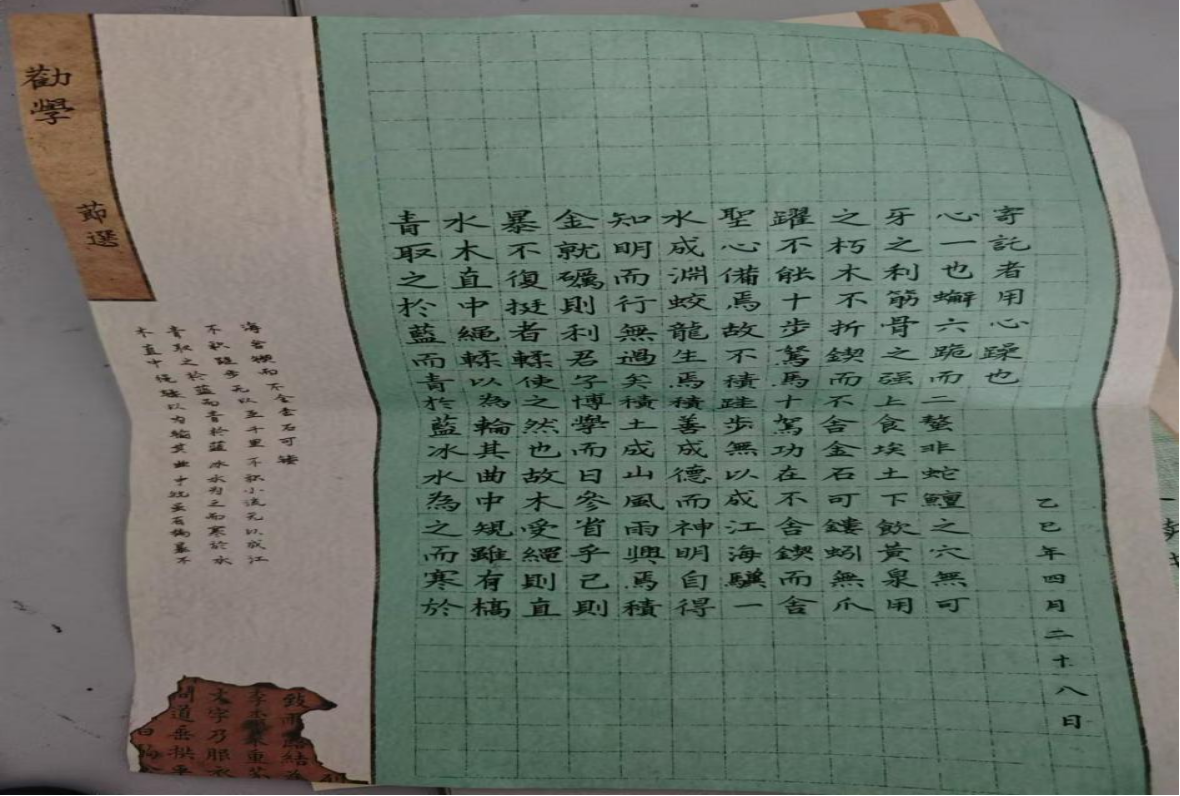 勸學
節選
青取之於藍而青於藍冰水為之而寒於
水木直中繩輮以為輪其曲中規雖有槁
暴不復挺者輮使之然也故木受繩則直
金就礪則利君子博學而日參省乎己則
知明而行無過矣積土成山風雨興焉積
水成淵蛟龍生焉積善成德而神明自得
聖心備焉故不積跬步無以成江海騏一
躍不能十步駑馬十駕功在不舍鍥而舍
之朽木不折鍥而不舍金石可鏤蚓無爪
牙之利筋骨之强上食埃土下飲黃泉用
心一也蠏六跪而二螯非蛇鱓之穴無可
寄託者用心躁也
乙巳年四月二十八日
木直中繩輮以为輪其曲中規虽有槁暴不
青取之於蓝而青於蓝冰水为之而寒於水
不积跬步无以至千里不积小流无以成江
海舍锲而不舍金石可镂
致雨結
李重
文字乃服衣
問道垂拱平